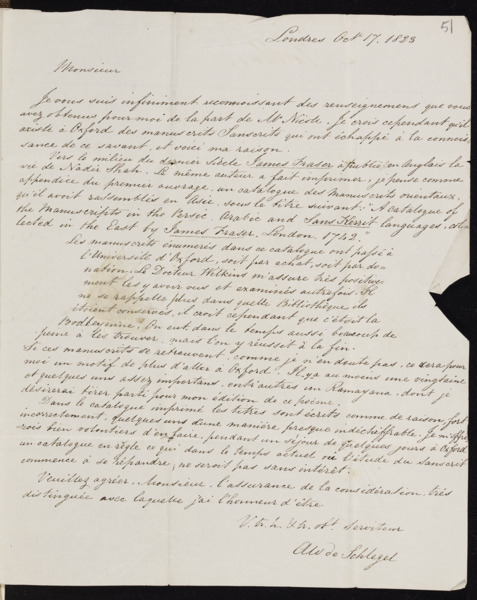 51
Londres Oct 17. 1823
Monsieur
Je vous suis infiniment reconnoissant des renseignemens que vous
avez obtenus pour moi de la part de Mr Nicoll. Je crois cependant qu'il
existe à Oxford des manuscrits Sanscrits qui ont échappé à la connois
sance de ce savant, et voici ma raison.
Vers le milieu du dernier Siècle James Fraser a publié en Anglais la
vie de Nadir Shah. Le même auteur a fait imprimer, je pense comme
appendice du premier ouvrage, un catalogue des Manuscrits orientaux,
qu'il avoit rassemblés en Asie, sous le titre suivant: "A catalogue of
the Manuscripts in the Persic, Arabic and Sanskerrit languages, col
lected in the East by James Fraser. London, 1742."
Les manuscrits énumérés dans ce catalogue ont passé à
l'Université d'Oxford, soit par achat, soit par do-
nation. Le Docteur Wilkins m'assure très positive-
ment les y avoir vus et examinés autrefois. Il
ne se rappelle plus dans quelle Bibliothèque ils
étoient conservés, il croit cependant que c'étoit la
Bodleyenne. On eut dans le temps aussi beaucoup de
peine à les trouver, mais l'on y réussit à la fin.
Si ces manuscrits se retrouvent, comme je n'en doute pas, ce sera pour
moi un motif de plus d'aller à Oxford. Il y a au moins une vingtaine
et quelques uns assez importans, entr'autres un Ramayana, dont je
désirerai tirer parti pour mon édition de ce poème.
Dans le catalogue imprimé les titres sont écrits comme de raison, fort
incorrectement, quelques uns d'une manière presque indéchiffrable. Je m'offri
rois bien volontiers d'en faire, pendant un séjour de quelques jours à Oxford
un catalogue en règle ce qui dans le temps actuel où l'étude du Sanscrit
commence à se répandre, ne seroit pas sans intérêt.
Veuillez agréer, Monsieur, l'assurance de la considération très
distinguée avec laquelle j'ai l'honneur d'être
V. tr. h. & tr. ob. Serviteur
AW de Schlegel